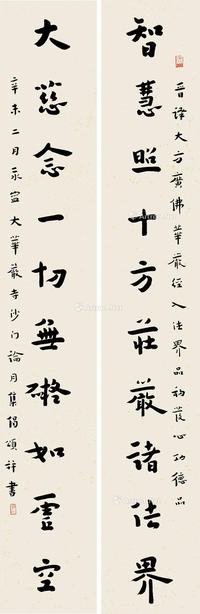 晋译大方广佛华严经入法界品初发心功德品
智慧照十方莊嚴諸法界
大慈念一切無礙如虛空
辛未二月永寧大華嚴寺沙门論月集偈頌并書